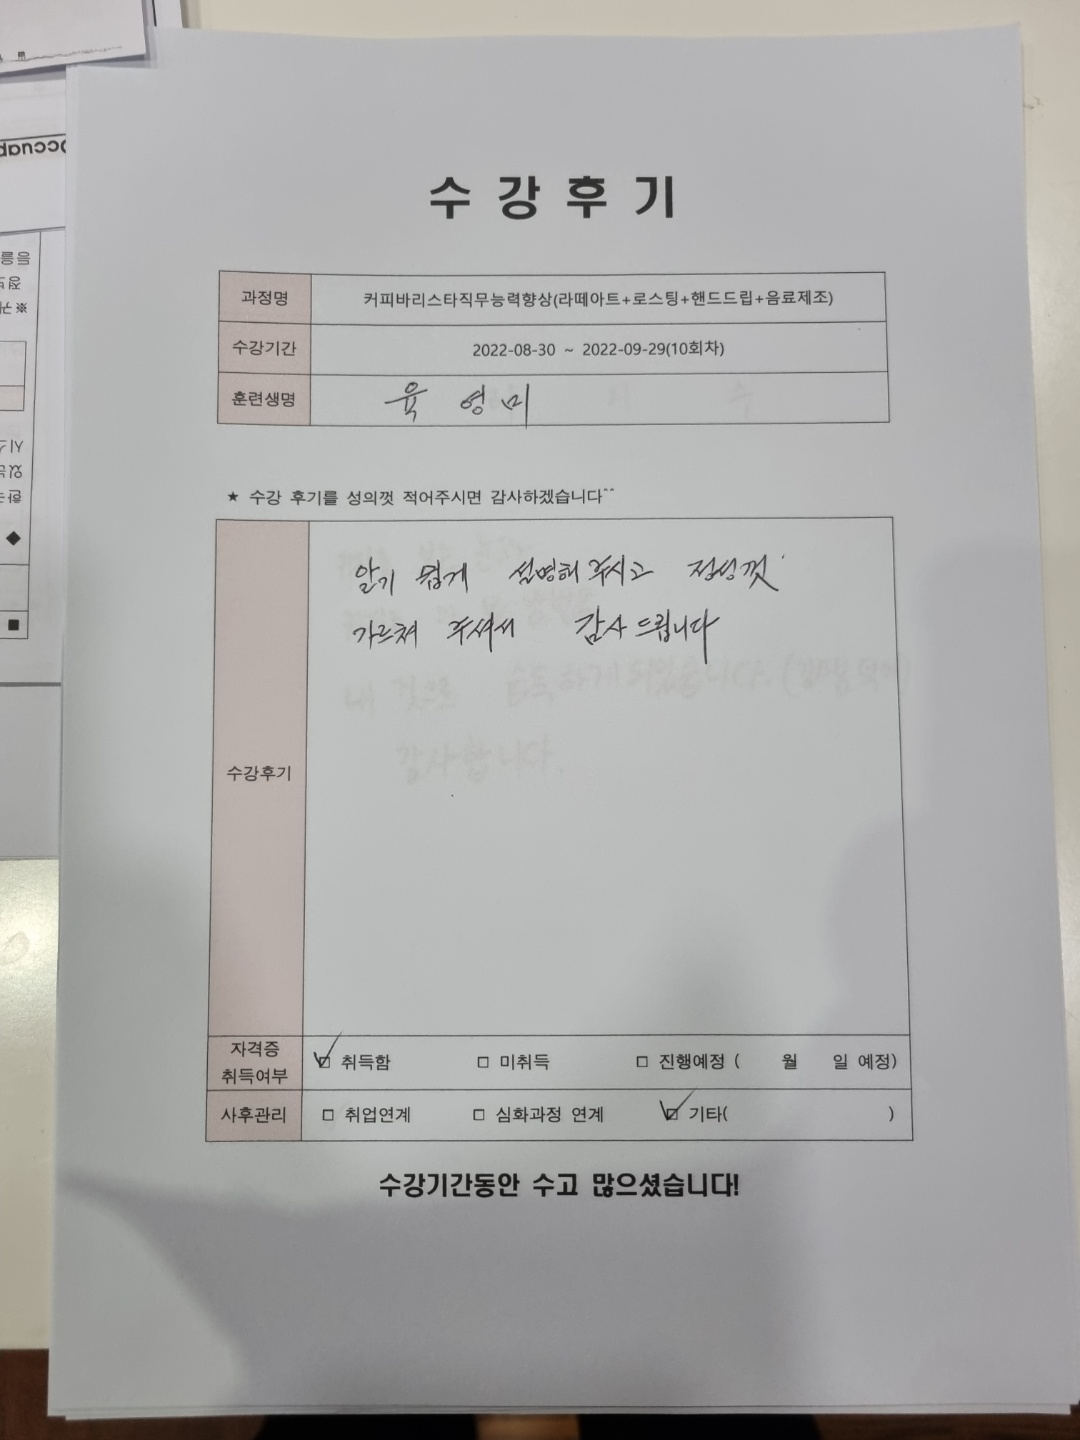 수강후기
과정명 커피바리스타직무능력향상(라떼아트+로스팅+핸드드립+음료제조)
수강기간 2022-08-30 ~ 2022-09-29(10회차)
훈련생명 육 영 미
★ 수강 후기를 성의껏 적어주시면 감사하겠습니다^^
알기 쉽게 설명해 주시고 정성껏
가르쳐 주셔서 감사 드립니다
수강후기
자격증
취득여부
☑ 취득함 □ 미취득 □ 진행예정 ( 월 일 예정)
사후관리 □ 취업연계 □ 심화과정 연계 ☑ 기타( )
수강기간동안 수고 많으셨습니다!